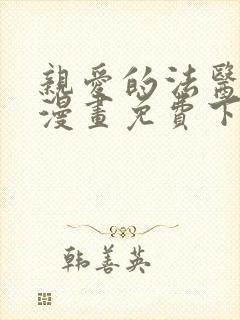 親愛的法醫
漫畫免費下
韩善英